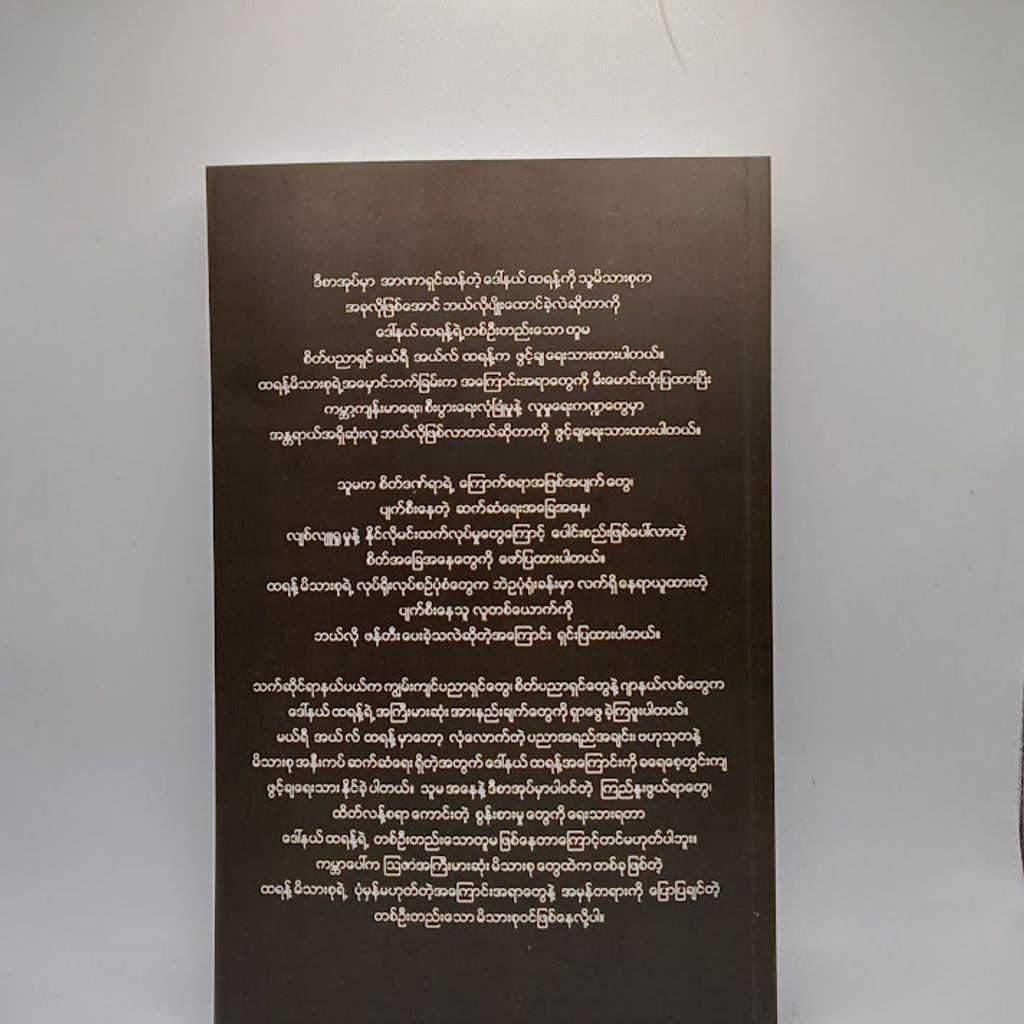 ဒီစာအုပ်မှာ အာဏာရှင်ဆန်တဲ့ ဒေါ်နယ် ထရန့်ကို သူ့မိသားစုက
အခုလိုဖြစ်အောင် ဘယ်လိုပျိုးထောင်ခဲ့လဲဆိုတာကို
ဒေါ်နယ် ထရန့်ရဲ့တစ်ဦးတည်းသော တူမ
စိတ်ပညာရှင် မယ်ရီ အယ်လ် ထရန့်က ဖွင့်ချရေးသားထားပါတယ်။
ထရန့်မိသားစုရဲ့အမှောင်ဘက်ခြမ်းက အကြောင်းအရာတွေကို မီးမောင်းထိုးပြထားပြီး
ကမ္ဘာ့ကျန်းမာရေး၊ စီးပွားရေးလုံခြုံမှုနဲ့ လူမှုရေးကဏ္ဍတွေမှာ
အန္တရာယ်အရှိဆုံးလူ ဘယ်လိုဖြစ်လာတယ်ဆိုတာကို ဖွင့်ချရေးသားထားပါတယ်။
သူမက စိတ်ဒဏ်ရာရဲ့ ကြောက်စရာအဖြစ်အပျက်တွေ၊
ပျက်စီးနေတဲ့ ဆက်ဆံရေးအခြေအနေ၊
လျစ်လျူရှုမှုနဲ့ နိုင်လိုမင်းထက်လုပ်မှုတွေကြောင့် ပေါင်းစည်းဖြစ်ပေါ်လာတဲ့
စိတ်အခြေအနေတွေကို ဖော်ပြထားပါတယ်။
ထရန့်မိသားစုရဲ့ လုပ်ရိုးလုပ်စဉ်ပုံစံတွေက ဘဲဥပုံရုံးခန်းမှာ လက်ရှိနေရာယူထားတဲ့
ပျက်စီးနေသူ လူတစ်ယောက်ကို
ဘယ်လို ဖန်တီးပေးခဲ့သလဲဆိုတဲ့အကြောင်း ရှင်းပြထားပါတယ်။
သက်ဆိုင်ရာနယ်ပယ်က ကျွမ်းကျင်ပညာရှင်တွေ၊ စိတ်ပညာရှင်တွေနဲ့ ဂျာနယ်လစ်တွေက
ဒေါ်နယ် ထရန့်ရဲ့ အကြီးမားဆုံး အားနည်းချက်တွေကို ရှာဖွေခဲ့ကြဖူးပါတယ်။
မယ်ရီ အယ်လ် ထရန့်မှာတော့ လုံလောက်တဲ့ ပညာအရည်အချင်း၊ ဗဟုသုတနဲ့
မိသားစုအနီးကပ် ဆက်ဆံရေး ရှိတဲ့အတွက် ဒေါ်နယ် ထရန့်အကြောင်းကို ခရေစေ့တွင်းကျ
ဖွင့်ချရေးသားနိုင်ခဲ့ပါတယ်။ သူမအနေနဲ့ ဒီစာအုပ်မှာပါဝင်တဲ့ ကြည်နူးဖွယ်ရာတွေ၊
ထိတ်လန့်စရာကောင်းတဲ့ စွန်းစားမှုတွေကို ရေးသားရတာ
ဒေါ်နယ် ထရန့်ရဲ့ တစ်ဦးတည်းသောတူမဖြစ်နေတာကြောင့်တင်မဟုတ်ပါဘူး။
ကမ္ဘာပေါ်က ဩဇာအကြီးမားဆုံး မိသားစုတွေထဲက တစ်ခုဖြစ်တဲ့
ထရန့်မိသားစုရဲ့ ပုံမှန်မဟုတ်တဲ့အကြောင်းအရာတွေနဲ့ အမှန်တရားကို ပြောပြချင်တဲ့
တစ်ဦးတည်းသော မိသားစုဝင်ဖြစ်နေလို့ပါ။